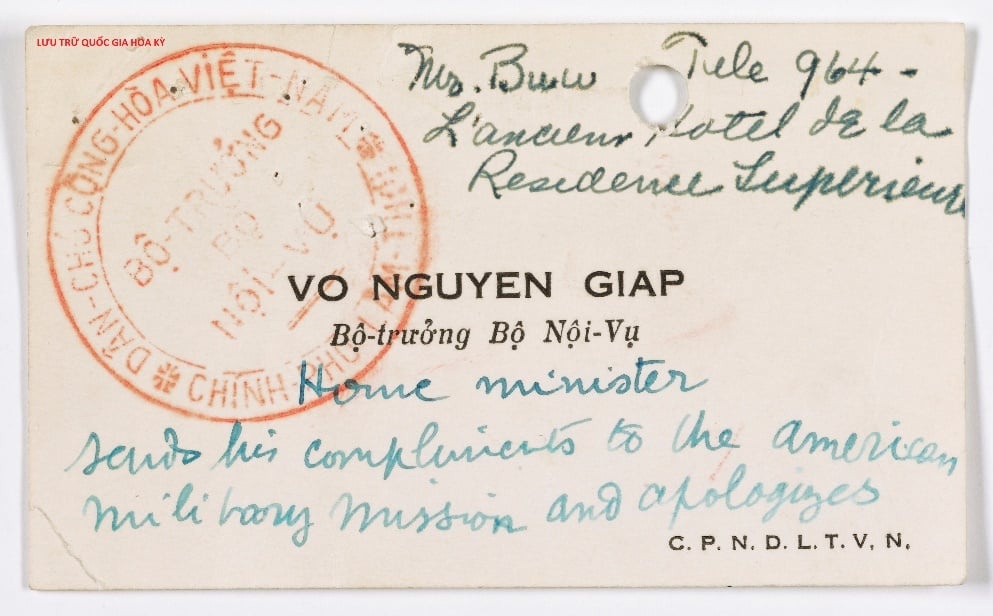 LƯU TRỮ QUỐC GIA HOA KỲ
Tele 964 -
L'ancien Hotel de la
Residence Superieure
DÂN-CHỦ CỘNG-HÒA VIỆT-NAM
CHÍNH-PHỦ LÂM-THỜI
BỘ-TRƯỞNG
BỘ
NỘI-VỤ
VO NGUYEN GIAP
Bộ-trưởng Bộ Nội-Vụ
Home minister
sends his compliments to the American
military mission and apologizes
C. P. N. D. L. T. V. N.